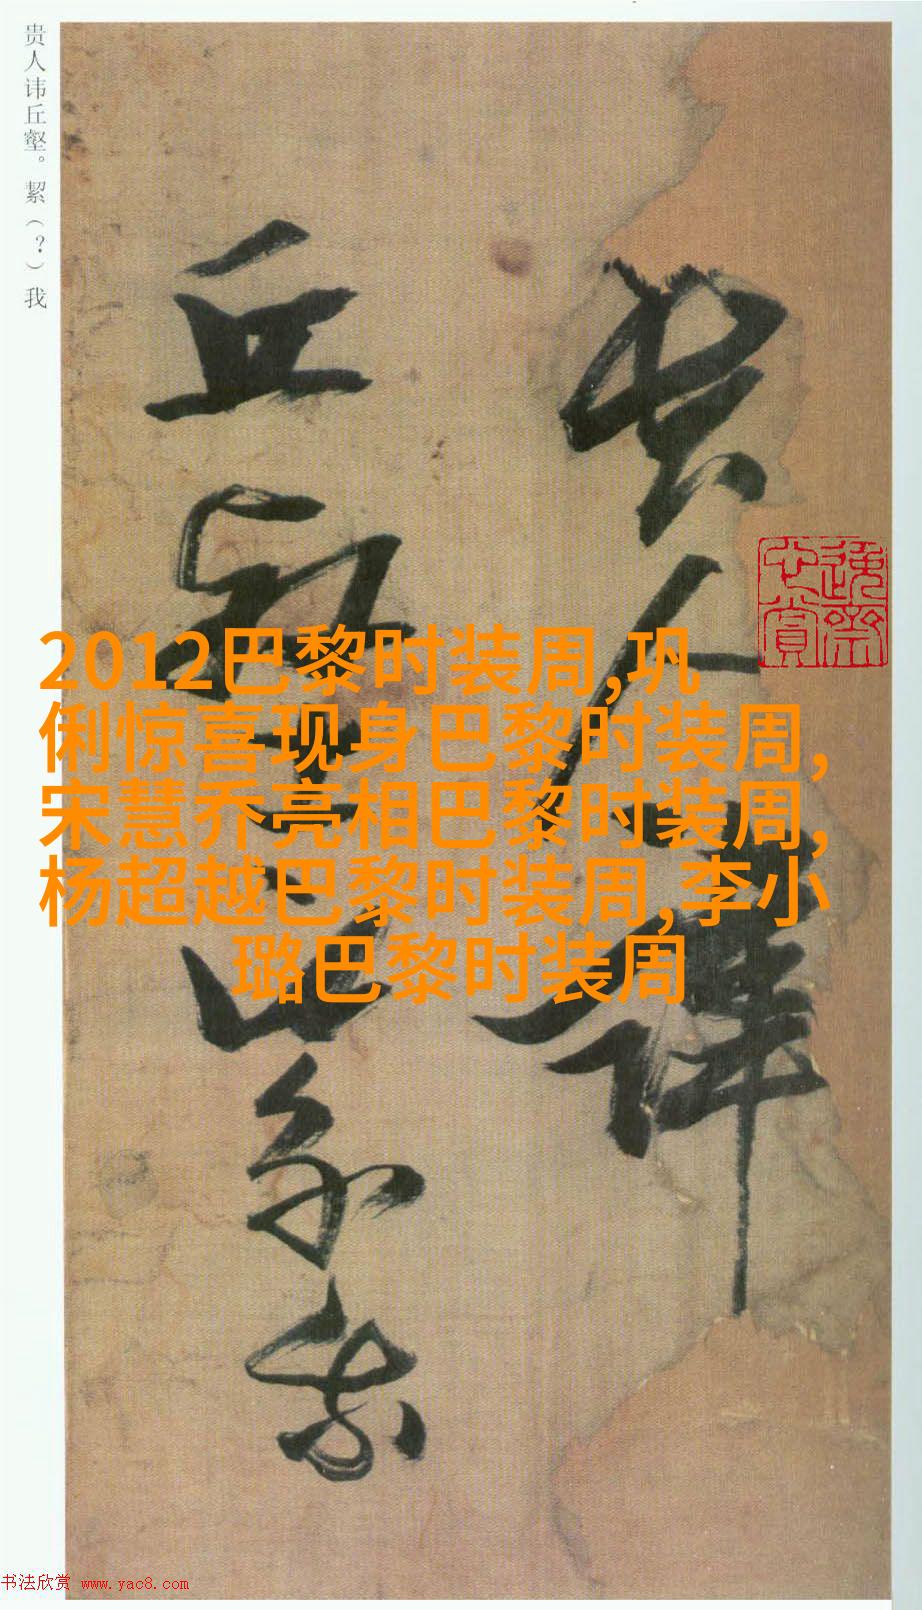 贵人讳丘壑。絜（？）我
贵人讳
丘壑正当絜我
2012巴黎时装周,巩
俐惊喜现身巴黎时装周,
宋慧乔亮相巴黎时装周,
杨超越巴黎时装周,李小
璐巴黎时装周
书法欣赏 www.yac8.com